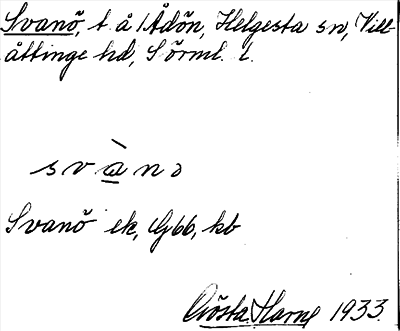 Svanö, t. å Ådön, Helgesta sn, Vill-
åttinge hd, Sörml. l.
svàno
Svanö ek, G66, kb
Gösta Harne 1933.